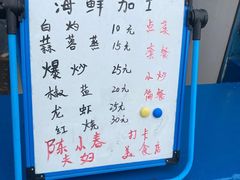 海鲜加工
白灼 10元 点菜
蒜蓉蒸 15元 套餐
爆炒 25元 小炒
椒盐 20元 简餐
龙虾 25元
红烧 30元 打卡
陈小春 美食店
夫妇